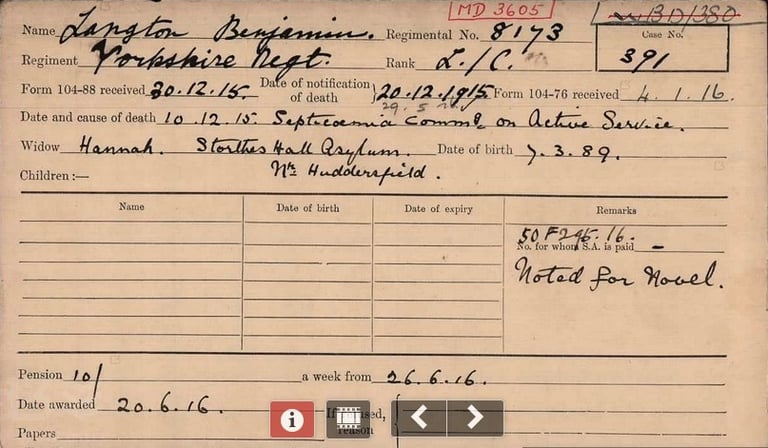 MD 3605
BD/1380
Name Langton Benjamin. Regimental No. 8173 Case No.
Regiment Yorkshire Regt. Rank L./C. 391
Form 104-88 received 30.12.15. Date of notification of death } 20.12.1915 Form 104-76 received 4.1.16.
Date and cause of death 10.12.15. Septicaemia Commd on Active Service.
Widow Hannah. Storthes Hall Asylum. Date of birth 7.3.89.
Children:— Nr Huddersfield.
Name Date of birth Date of expiry Remarks
50F 16.
No. for whom S.A. is paid —
Noted for Novel.
Pension 10/ a week from 26.6.16.
Date awarded 20.6.16. If
Papers reason